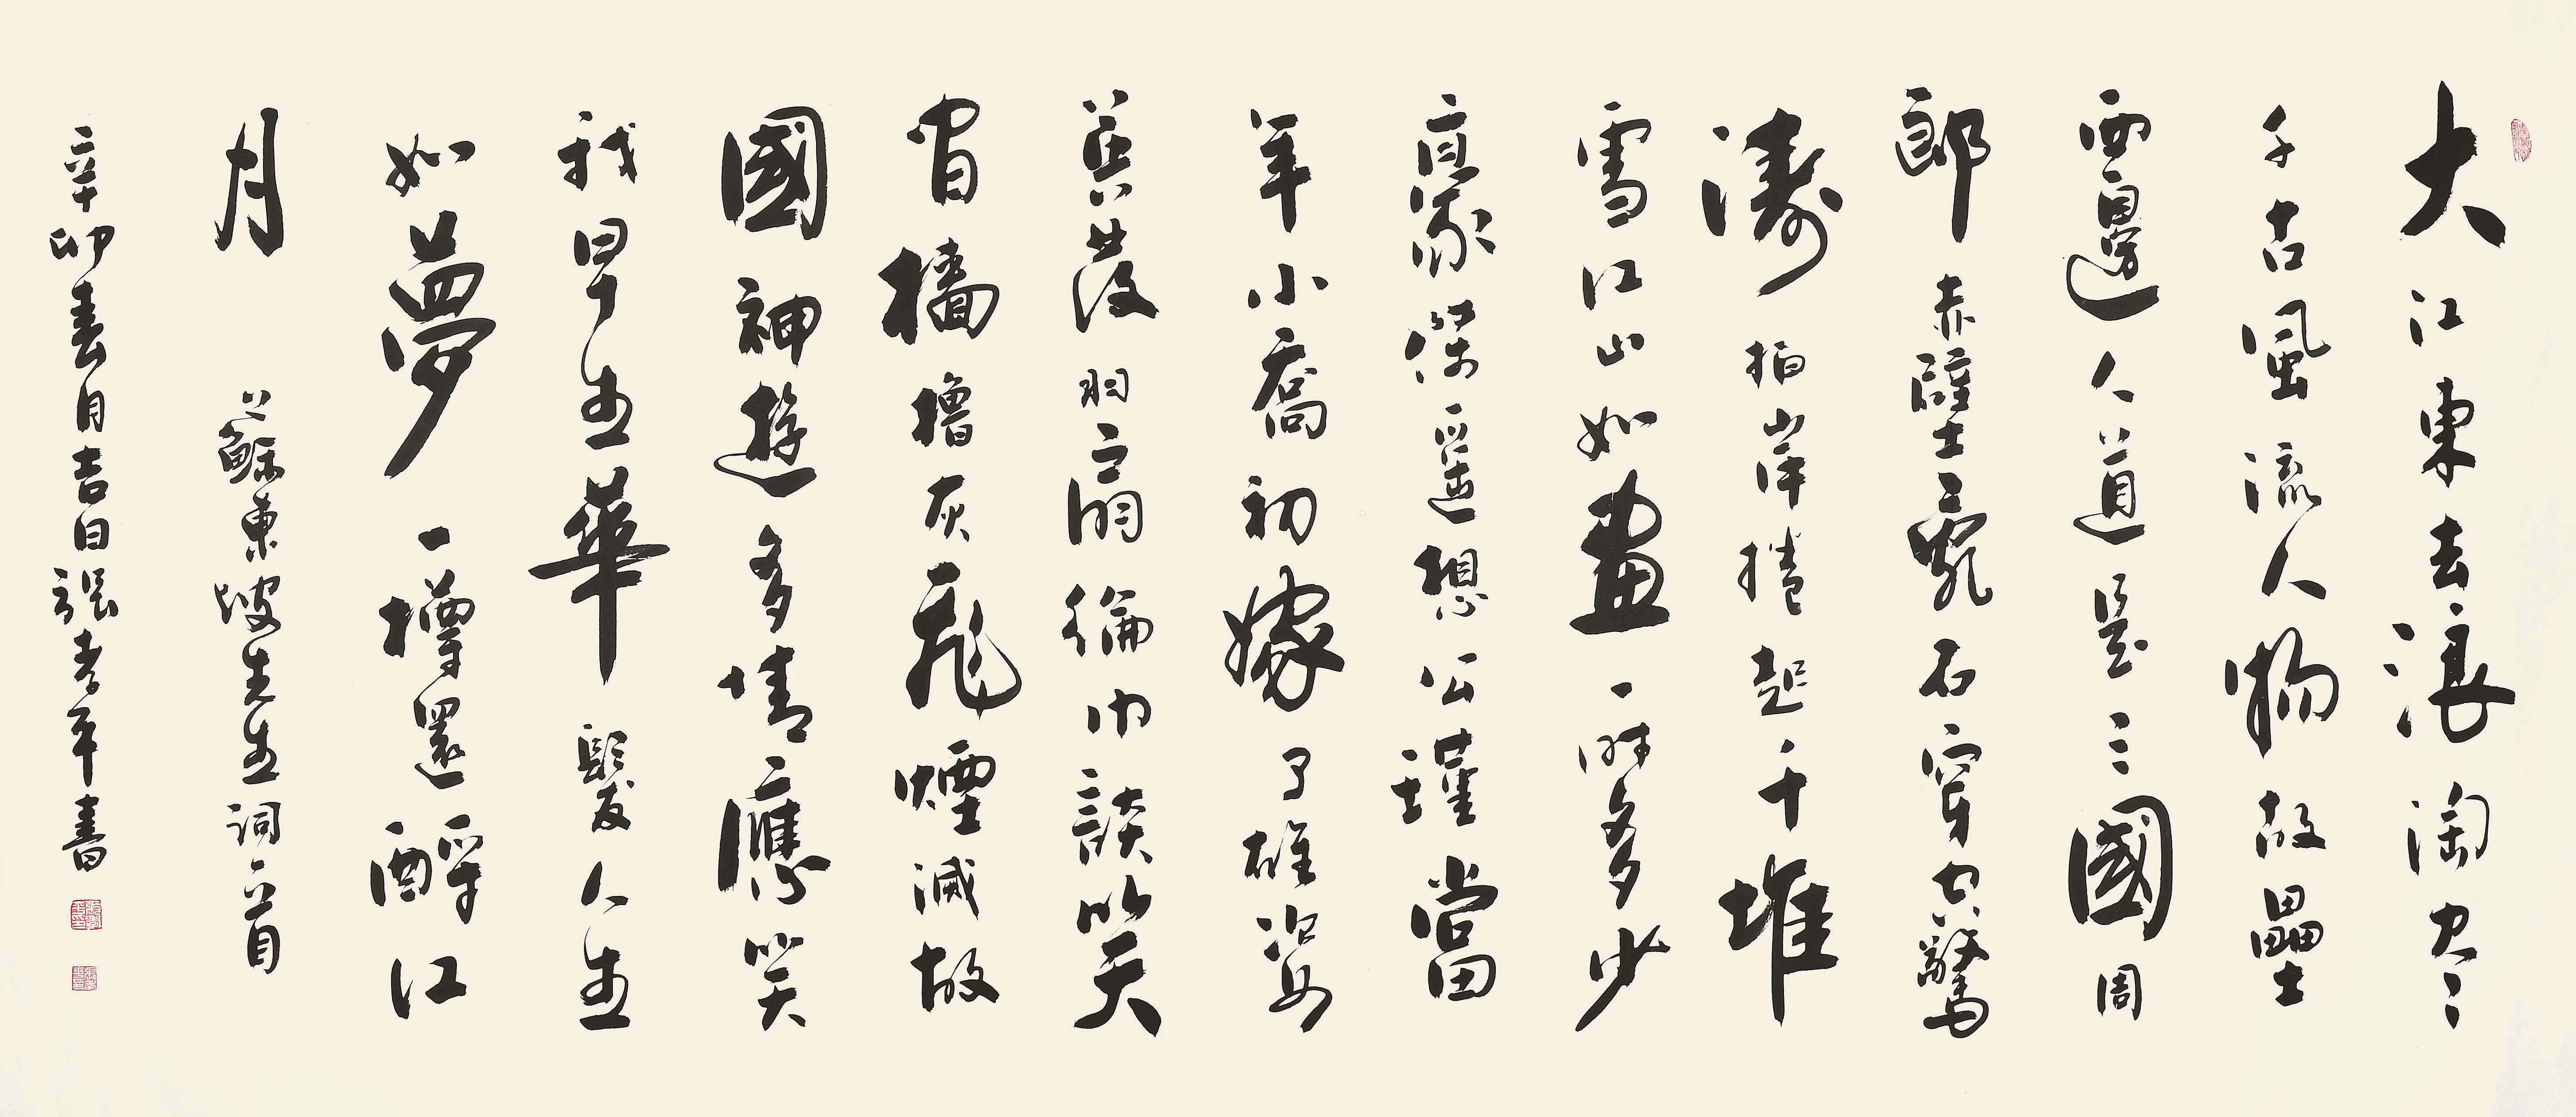 大江東去浪淘尽
千古風流人物故壘
西邊人道是三國周
郎赤壁亂石穿空驚
濤拍岸捲起千堆
雪江山如畫一時多少
豪傑遙想公瑾當
年小喬初嫁了雄姿
英發羽扇綸巾談笑
間檣櫓灰飛煙滅故
國神遊多情應笑
我早生華髮人生
如夢一樽還酹江
月 蘇東坡先生詞一首
辛卯春月吉日張孝平書